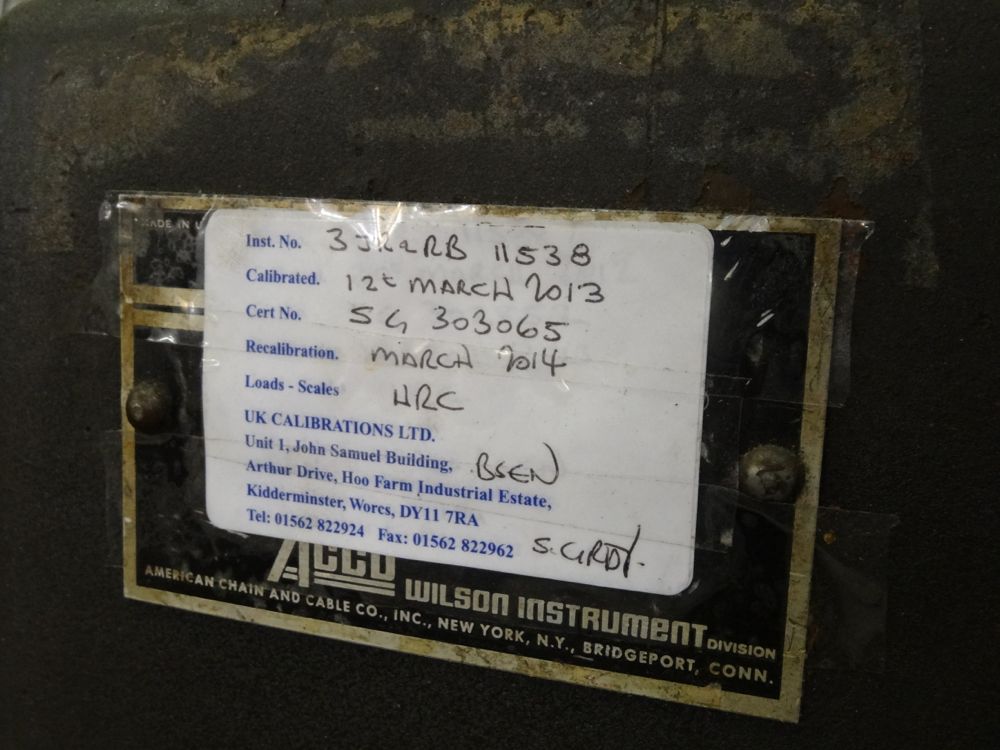 MADE IN U
Inst. No. 3JR2RB 11538
Calibrated. 12t MARCH 2013
Cert No. SG 303065
Recalibration. MARCH 2014
Loads - Scales HRC
UK CALIBRATIONS LTD.
Unit 1, John Samuel Building, BSEN
Arthur Drive, Hoo Farm Industrial Estate,
Kidderminster, Worcs, DY11 7RA
Tel: 01562 822924 Fax: 01562 822962
ACCO WILSON INSTRUMENT DIVISION
AMERICAN CHAIN AND CABLE CO., INC., NEW YORK, N.Y., BRIDGEPORT, CONN.